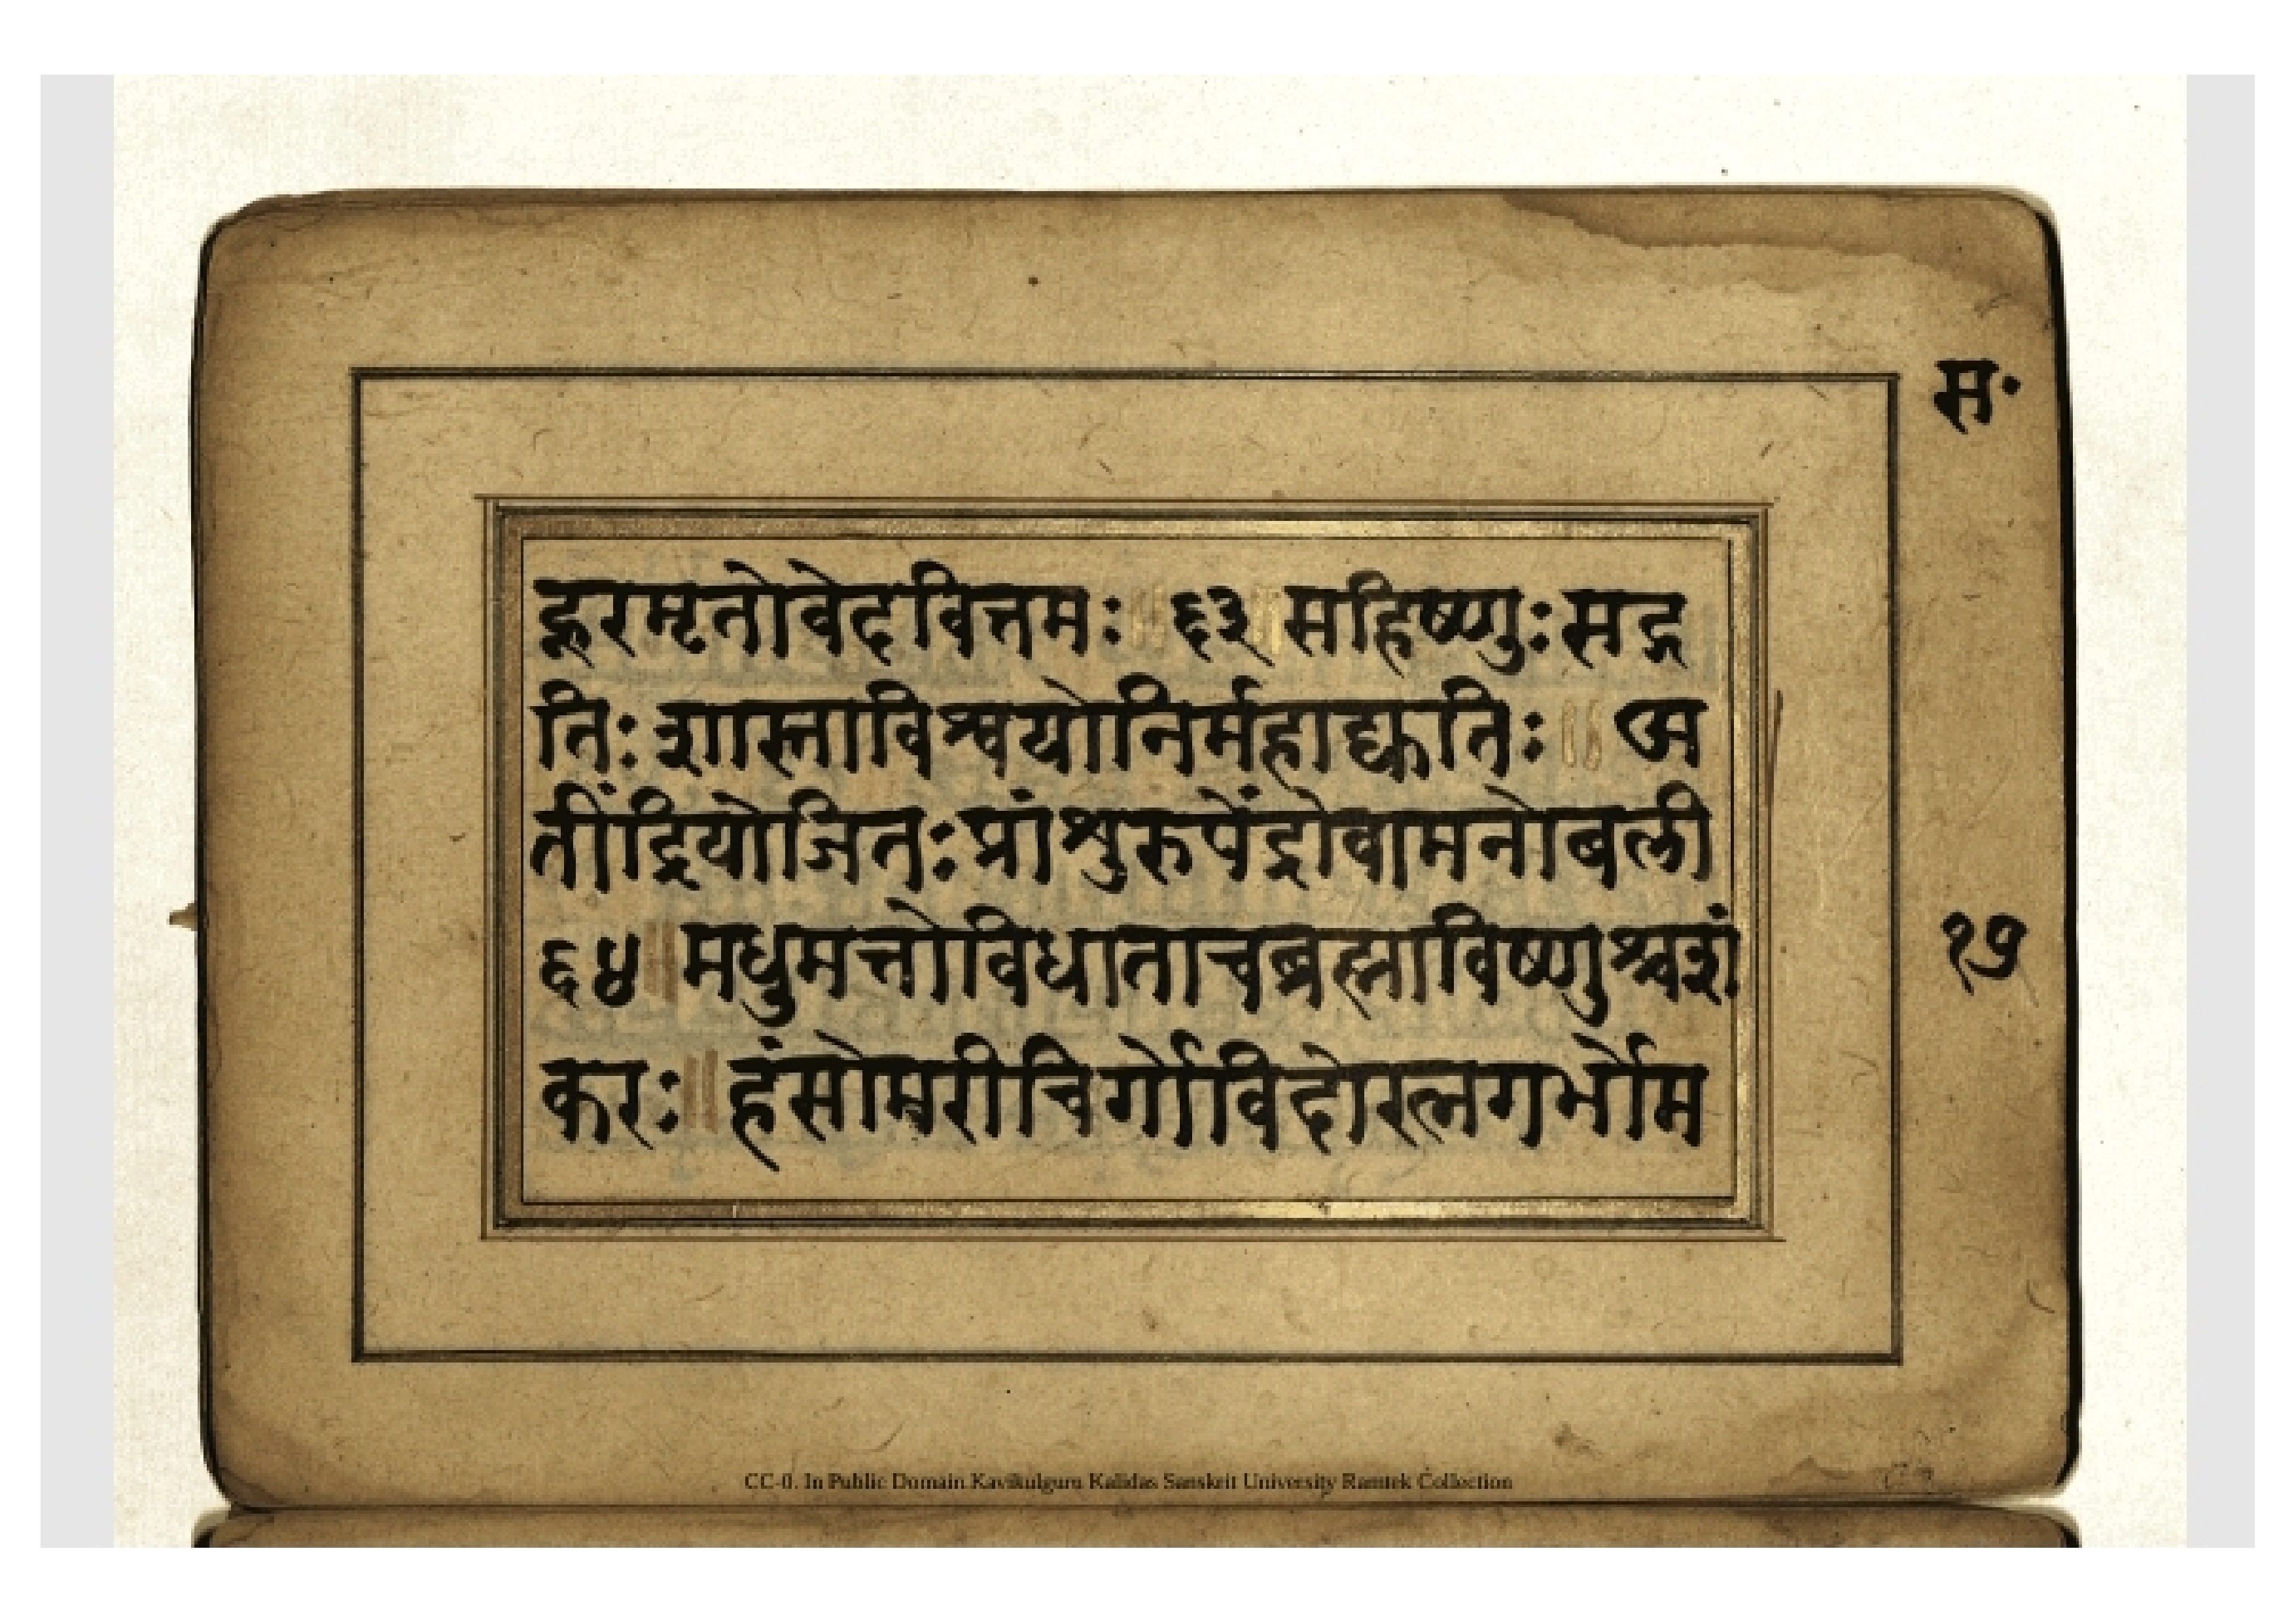 स॰
ह्नरमृतोवेदवित्तमः ॥ ६३ ॥ सहिष्णुःसद्ग
तिः शास्ताविश्वयोनिर्महाद्युतिः ॥ अ
तींद्रियोजितःप्रांशुरुपेंद्रोवामनोबली
६४ ॥ मधुमत्तोविधाताचब्रह्माविष्णुश्चशं
करः ॥ हंसोमरीचिर्गोविंदोरत्नगर्भोम
१७
CC-0. In Public Domain Kavikulguru Kalidas Sanskrit University Ramtek Collection